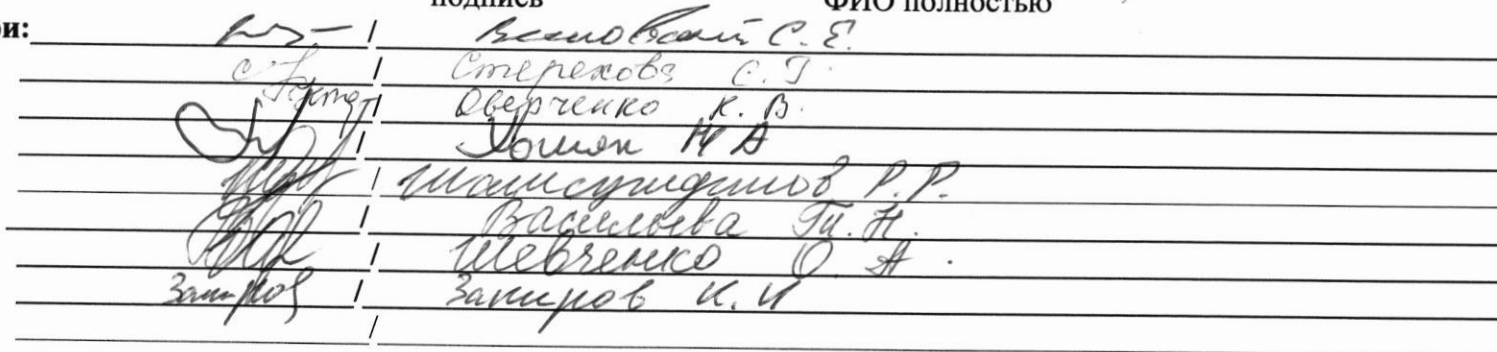 подпись ФИО полностью
ри: / С. Е.
/ Стерехова С. Г.
/ Оверченко К. В.
/ Н А
/ Шамсутдинов Р. Р.
/ Васильева Т. Н.
/ Шевченко О. А.
Закиров / Закиров К. И
/